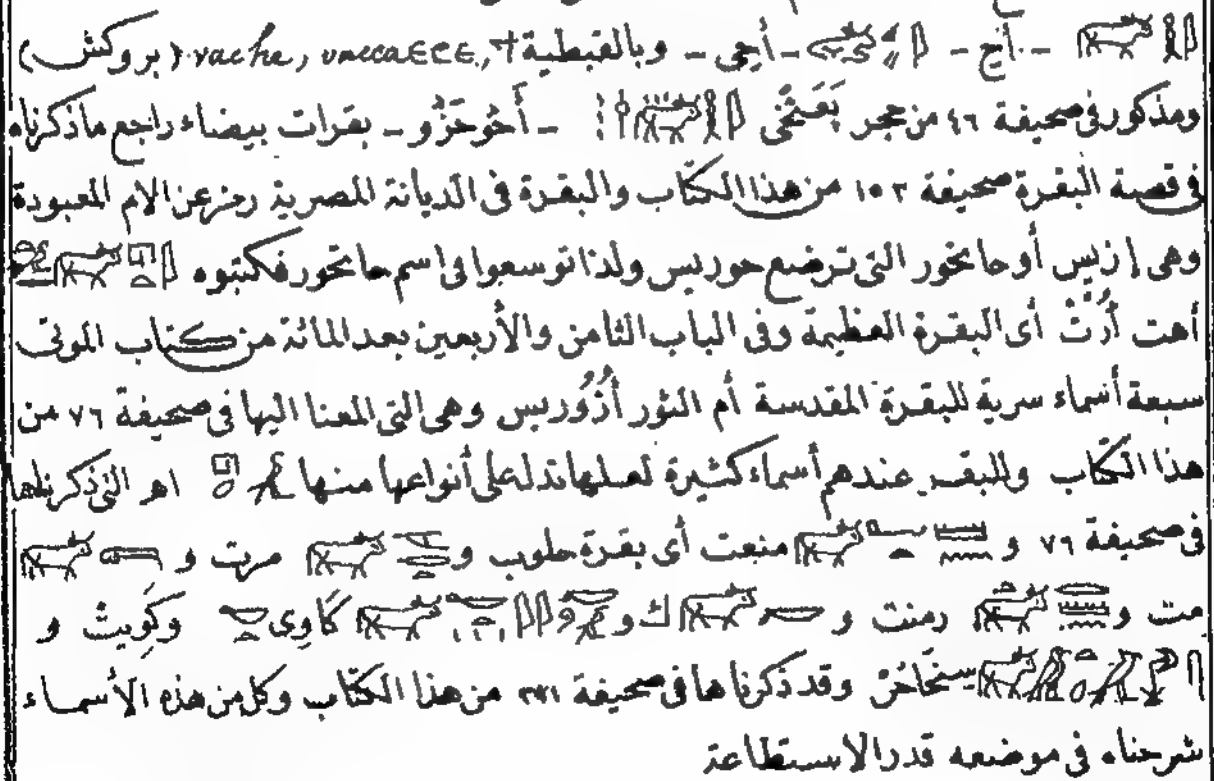 - أج - - أجى - وبالقبطية vache, (بروكش)
ومذكور فى صحيفة ٤٦ من حجر بَعَنْخَى - أَحُو حَزُو - بقرات بيضاء راجع ماذكرناه
فى قصة البقرة صحيفة ١٥٢ من هذا الكتاب والبقرة فى الديانة المصرية رمز عن الام المعبودة
وهى إزيس أو حاتحور التى ترضع حوريس ولذا توسعوا فى اسم حاتحور فكتبوه
أهت أُرَتْ أى البقرة العظيمة وفى الباب الثامن والأربعين بعد المائة من كتاب الموتى
سبعة أسماء سرية للبقرة المقدسة أم الثور أُزُوريس وهى التى المعنا اليها فى صحيفة ٧٦ من
هذا الكتاب وللبقر عندهم أسماء كثيرة لعلها تدل على أنواعها منها اهـ التى ذكرناها
فى صحيفة ٧٦ و منعت أى بقرة حلوب و مرت و
مت و رمنت و ك و كَاوِى وكَوِيتْ و
وقد ذكرناها فى صحيفة من هذا الكتاب وكل من هذه الأسماء
شرحناه فى موضعه قدر الاستطاعة